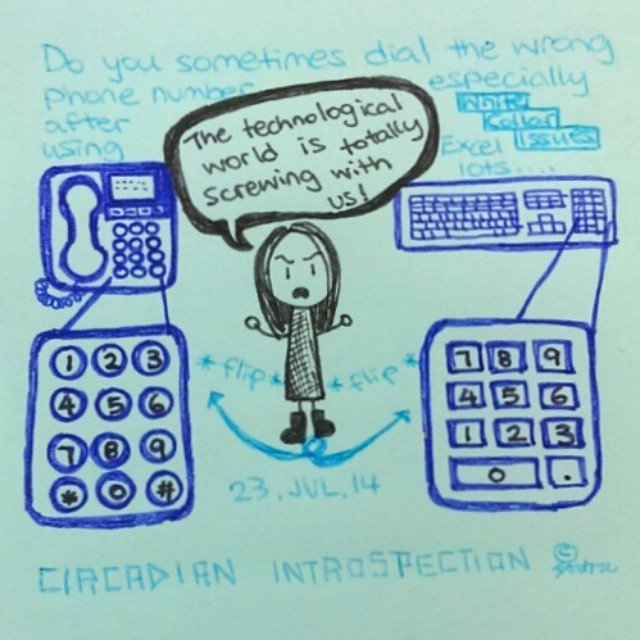 Do you sometimes dial the wrong
phone number especially
after
using
White
Collar
Issues
Excel
lots....
The technological
world is totally
screwing with
us!
1 2 3
4 5 6
7 8 9
* 0 #
*flip* *flip*
7 8 9
4 5 6
1 2 3
0 .
23.JUL.14
CIRCADIAN INTROSPECTION ©